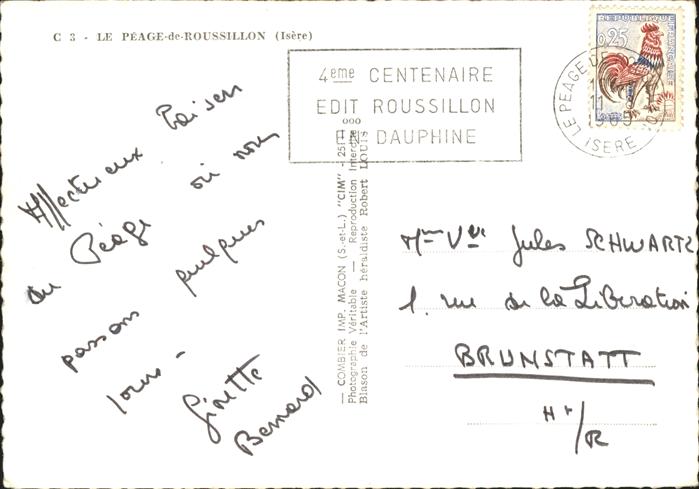 C 3 - LE PÉAGE-de-ROUSSILLON (Isère)
4eme CENTENAIRE
EDIT ROUSSILLON
EN DAUPHINE
LE PÉAGE DE
ISERE
REPUBLIQUE FRANÇAISE
0,25
Affectueux Baisers
du Péage où nous
passons quelques
jours -
Ginette
Bernard
— COMBIER IMP. MACON (S.-et-L.) "CIM" -
Photographie Véritable — Reproduction Interdite
Blason de l'Artiste héraldiste Robert LOUIS
Mme Vve Jules SCHWARTZ
1. rue de la Libération
BRUNSTATT
Ht/R